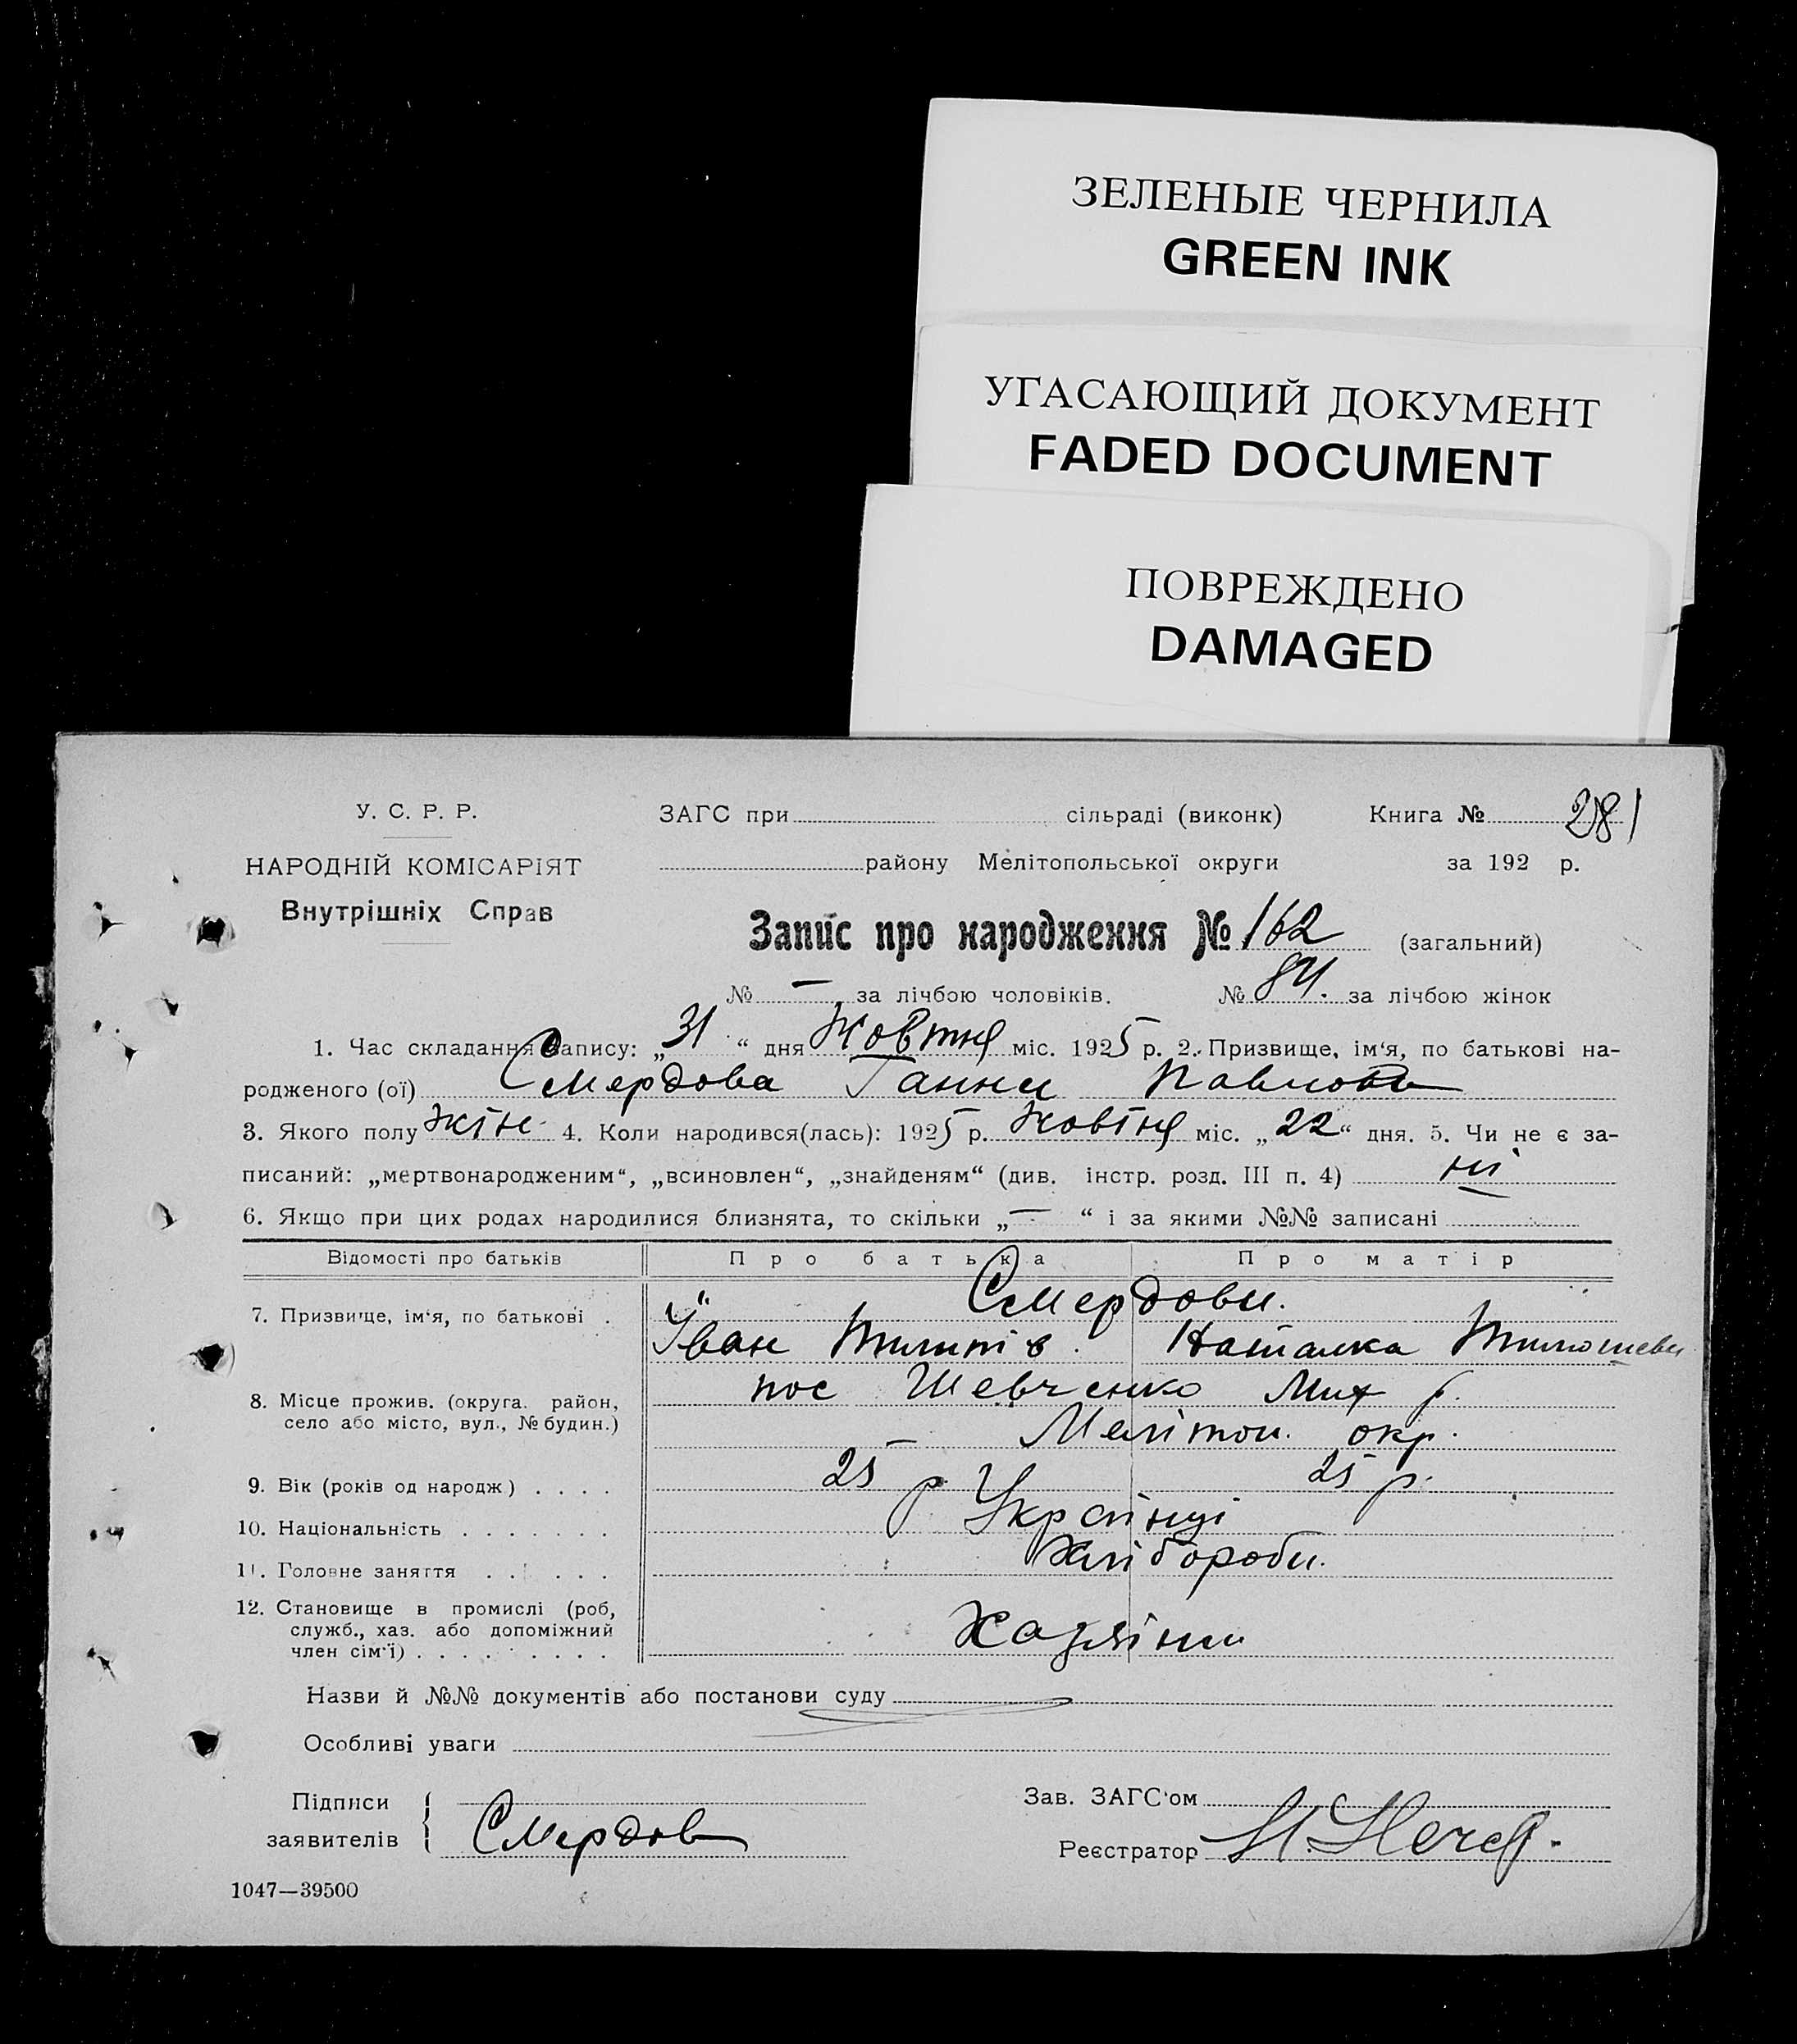 ЗЕЛЕНЫЕ ЧЕРНИЛА
GREEN INK
УГАСАЮЩИЙ ДОКУМЕНТ
FADED DOCUMENT
ПОВРЕЖДЕНО
DAMAGED
У. С. Р. Р.
НАРОДНІЙ КОМІСАРІЯТ
Внутрішніх Справ
ЗАГС при сільраді (виконк) Книга № 281
району Мелітопольської округи за 192 р.
Запис про народження № 162 (загальний)
№ — за лічбою чоловіків. № 84. за лічбою жінок
1. Час складання запису: „31“ дня Жовтня міс. 1925 р. 2. Призвище, ім‘я, по батькові на-
родженого (ої) Смердова Ганна
3. Якого полу жін. 4. Коли народився(лась): 1925 р. Жовтня міс. „22“ дня. 5. Чи не є за-
писаний: „мертвонародженим“, „всиновлен“, „знайденям“ (див. інстр. розд. III п. 4) ні
6. Якщо при цих родах народилися близнята, то скільки „—“ і за якими №№ записані
Відомості про батьків Про батька Про матір
7. Призвище, ім‘я, по батькові . Смердови.
Іван Наталка
8. Місце прожив. (округа. район, село або місто, вул., № будин.) пос Шевченко Мих р.
Мелітоп. окр.
9. Вік (років од народж) . . . . 25 р. 25 р.
10. Національність . . . . . . . Українці
11. Головне заняття . . . . . . Хлібороби.
12. Становище в промислі (роб, служб., хаз. або допоміжний член сім‘ї) . . . . . . . . . Хазяіни
Назви й №№ документів або постанови суду
Особливі уваги
Підписи заявителів Смердов
Зав. ЗАГС‘ом
Реєстратор
1047—39500